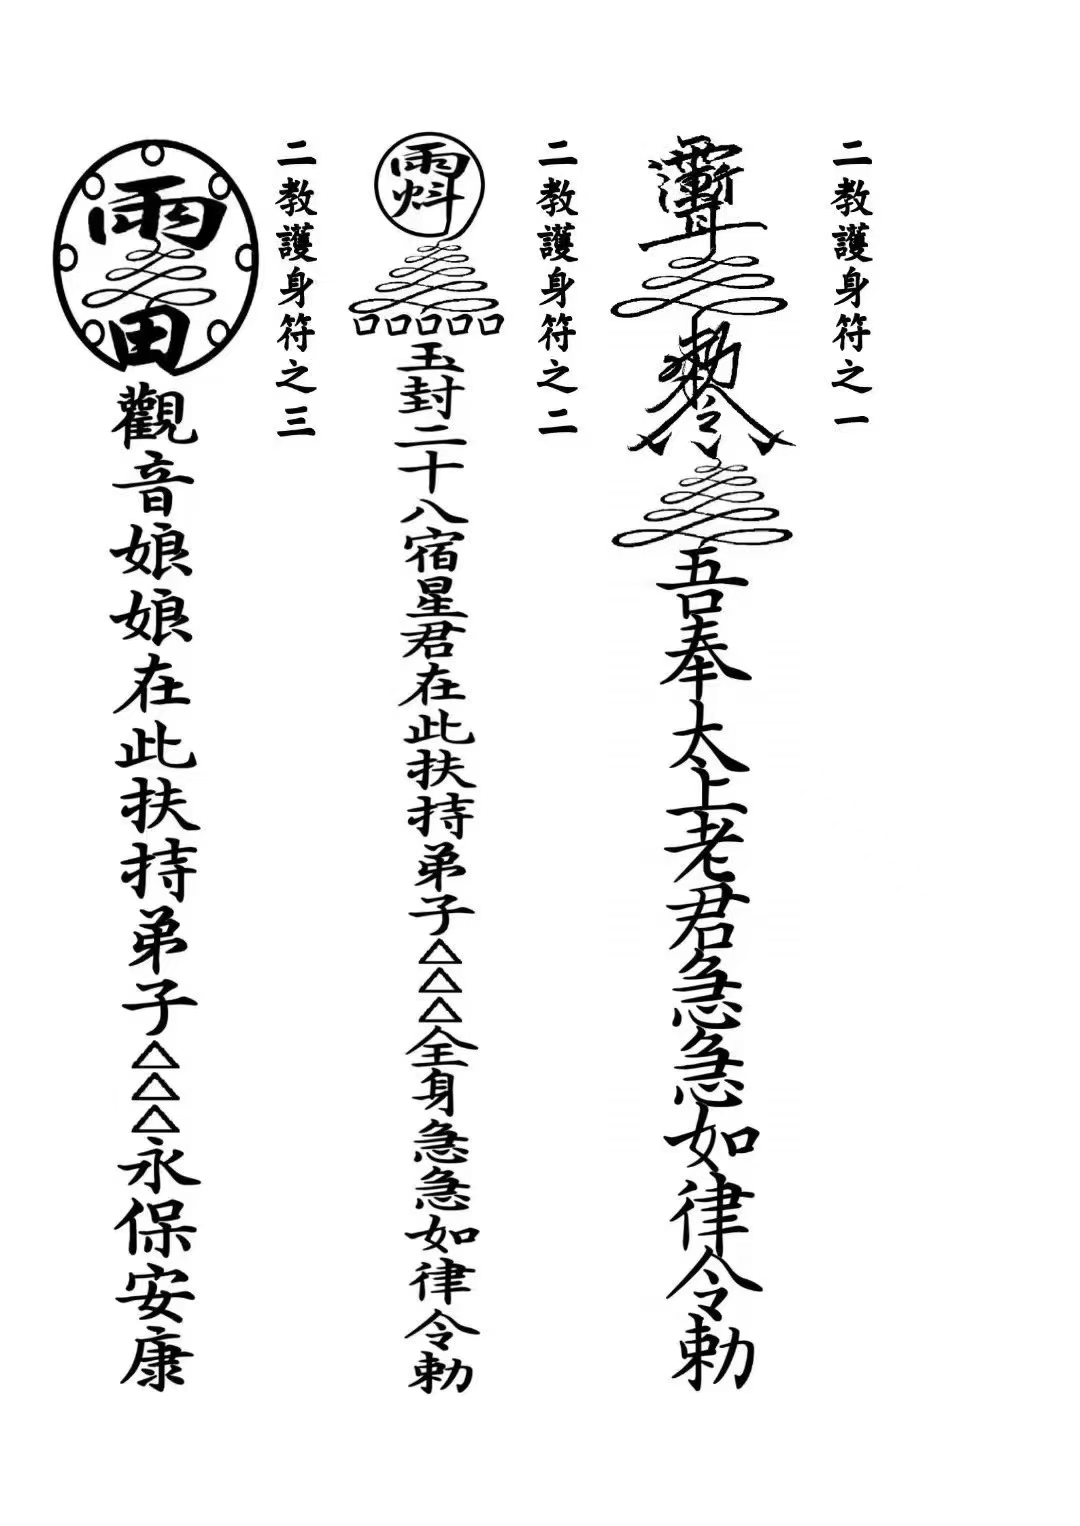 二教護身符之一
勅令
吾奉太上老君急急如律令勅
二教護身符之二
雨
口口口口口
玉封二十八宿星君在此扶持弟子△△△全身急急如律令勅
二教護身符之三
雨
田
觀音娘娘在此扶持弟子△△△永保安康